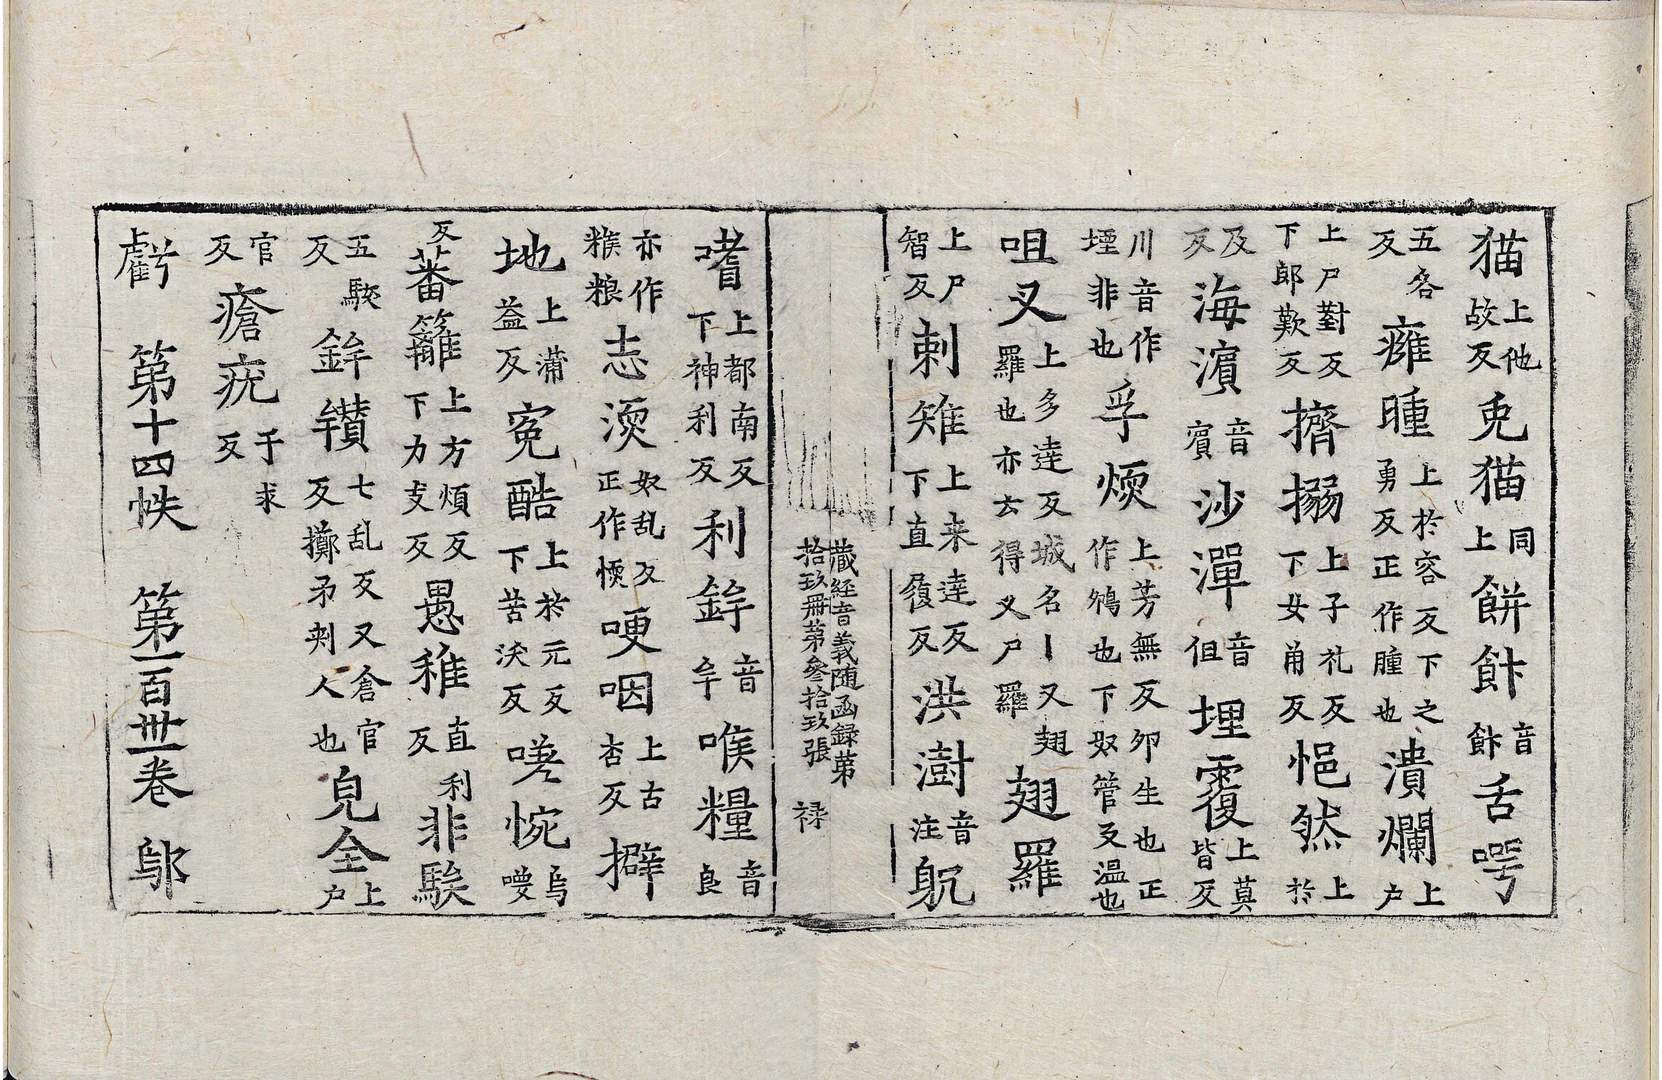 猫上他故反兎猫同上餅飰音飰舌㗁
五各反癕瞳上於容反下之勇反正作腫也潰爛上戶
上尸對反下郎歎反擠搦上子礼反下女甬反悒然上於
及反海濵音賔沙潬音但埋覆上莫皆反
川音作堙非也孚煗上芳無反夘生也正作㲉也下奴管反温也
咀叉上多達反城名丨又翅羅也亦云得叉尸羅翅羅
上尸智反剌雉上来達反下直履反洪澍音注躭
藏経音義随函録第拾玖冊第叄拾玖張 禄
嗜上都南反下神利反利鉾音牟喉糧音良
亦作糇粮志渜奴乱反正作愞哽咽上古杏反擗
地上蒲益反寃酷上於元反下苦沃反嗟惋烏喚
反蕃籬上方煩反下力支反愚稚直利反非騃
五騃反鉾鑚七乱反又倉官反擲矛刾人也皃全上戶
官反瘡疣于求反
虧　第十四帙　第一百卅一卷　鄔